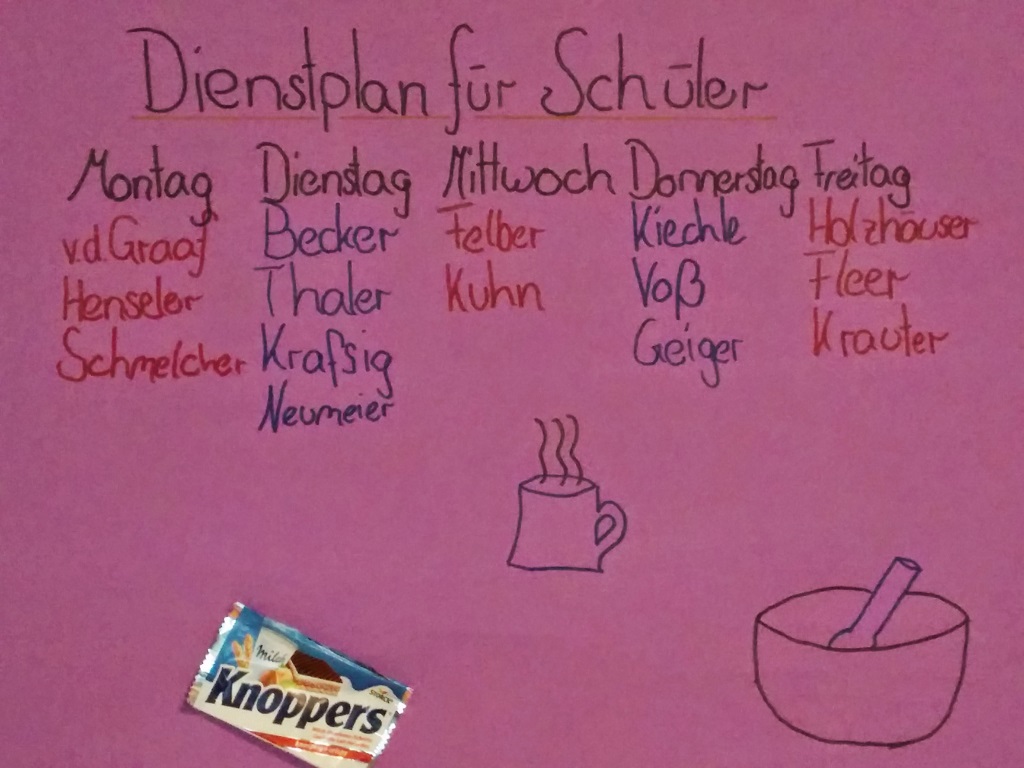 Dienstplan für Schüler
Montag Dienstag Mittwoch Donnerstag Freitag
v.d.Graaf Becker Felber Kiechle Holzhäuser
Henseler Thaler Kuhn Voß Fleer
Schmelcher Krafsig Geiger Krauter
Neumeier
Milch
Knoppers
STORCK